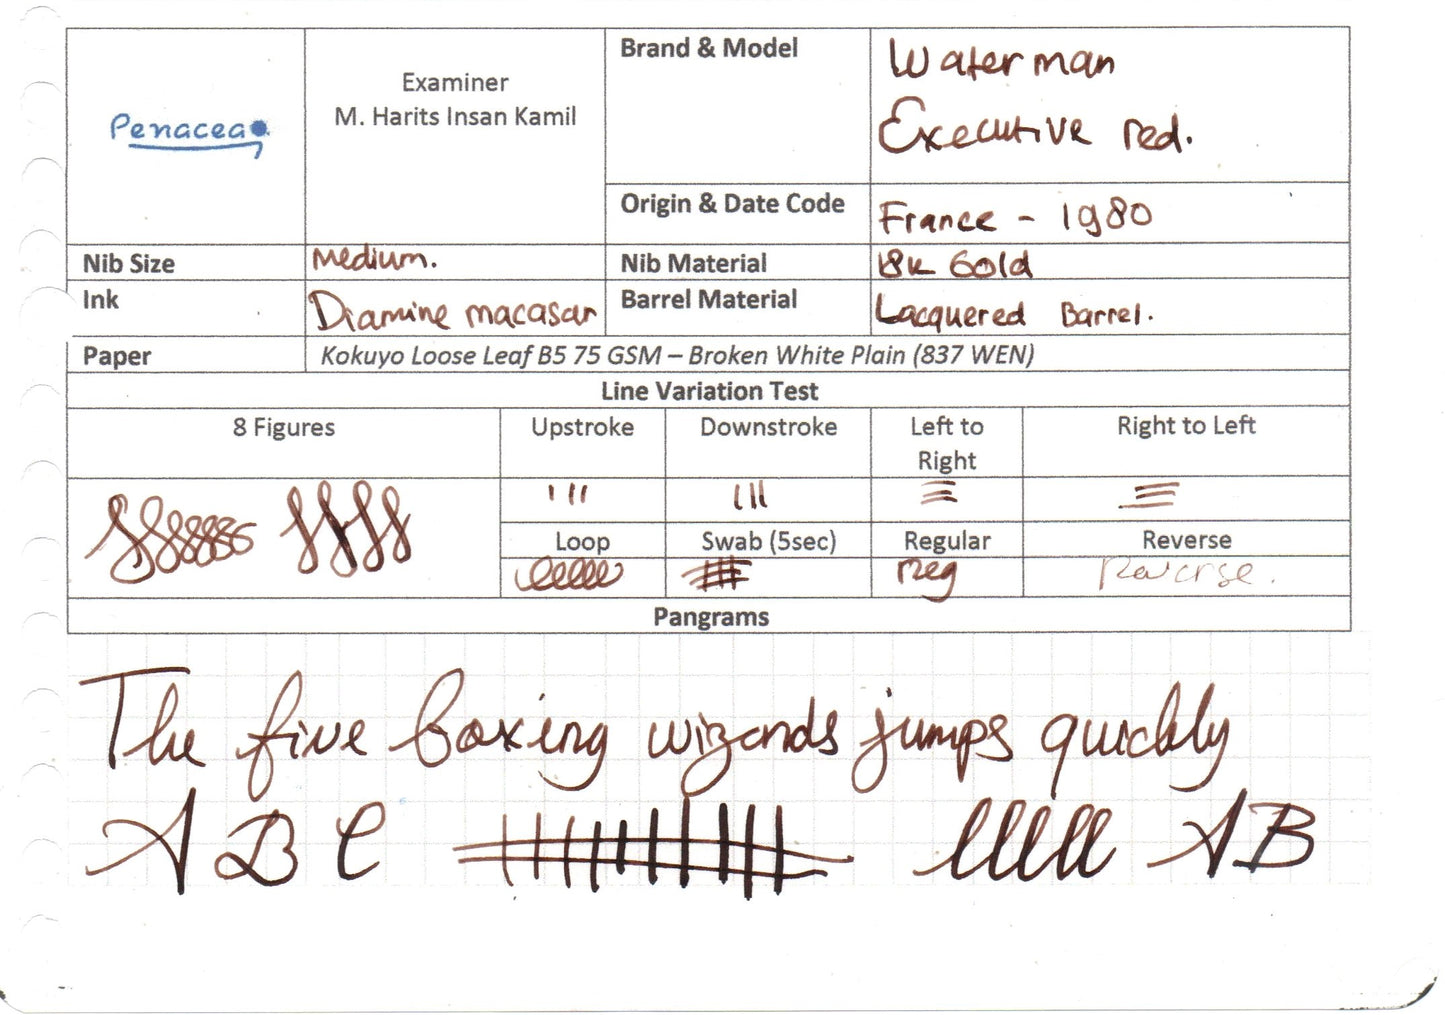 Penacea
Examiner
M. Harits Insan Kamil
Brand & Model
Waterman
Executive red.
Origin & Date Code
France - 1980
Nib Size
Medium.
Nib Material
18k Gold
Ink
Diamine macasar
Barrel Material
Lacquered Barrel.
Paper
Kokuyo Loose Leaf B5 75 GSM – Broken White Plain (837 WEN)
Line Variation Test
8 Figures
Upstroke
Downstroke
Left to
Right
Right to Left
Loop
Swab (5sec)
Regular
Reverse
Reg
Reverse.
Pangrams
The five boxing wizards jumps quickly
A B C
A B